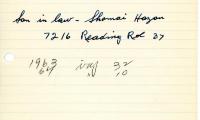 Son in law - Shomai Hazan
7216 Reading Rd 37
1963 ivy 32
64 " 10